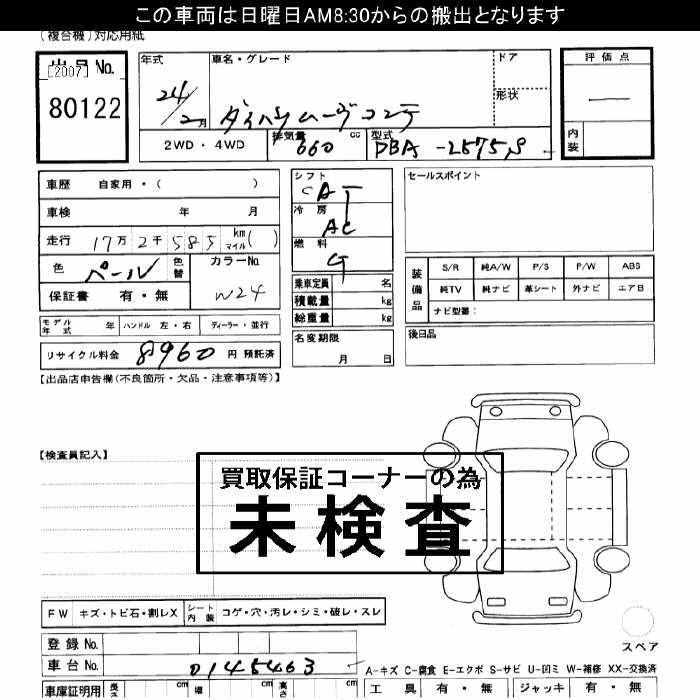 この車両は日曜日AM8:30からの搬出となります
(複合機)対応用紙
出品 No. [2007]
80122
年式 24/2月
車名・グレード ダイハツムーヴコンテ
ドア
形状
評価点
内装
2WD・4WD
排気量 660 cc
型式 DBA-L575S
車歴 自家用・( )
車検 年 月
走行 17万2千585 km マイル( )
色 パール 色替
カラーNo. W24
保証書 有・無
モデル年式 年 ハンドル 左・右 ディーラー・並行
リサイクル料金 8960 円 預託済
シフト CAT
冷房 AC
燃料 G
乗車定員 名
積載量 kg
総重量 kg
名変期限
月 日
セールスポイント
装備品
S/R 純A/W P/S P/W ABS
純TV 純ナビ 革シート 外ナビ エアB
ナビ型番:
後日品
【出品店申告欄(不良箇所・欠品・注意事項等)】
【検査員記入】
買取保証コーナーの為
未検査
FW キズ・トビ石・割レX シート内装 コゲ・穴・汚レ・シミ・破レ・スレ
登録 No.
車台 No. 0145463
スペア
A-キズ C-腐食 E-エクボ S-サビ U-凹ミ W-補修 XX-交換済
車庫証明用 長さ cm 幅 cm 高さ cm
工具 有・無 ジャッキ 有・無